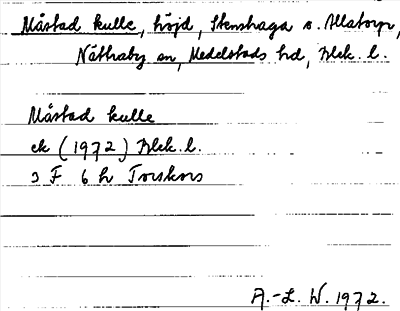 Måstad kulle, höjd, Stenshaga o. Allatorp,
Nättraby sn, Medelstads hd, Blek. l.
Måstad kulle
ek (1972) Blek. l.
3 F 6 h Torskors
A.-L. W. 1972.